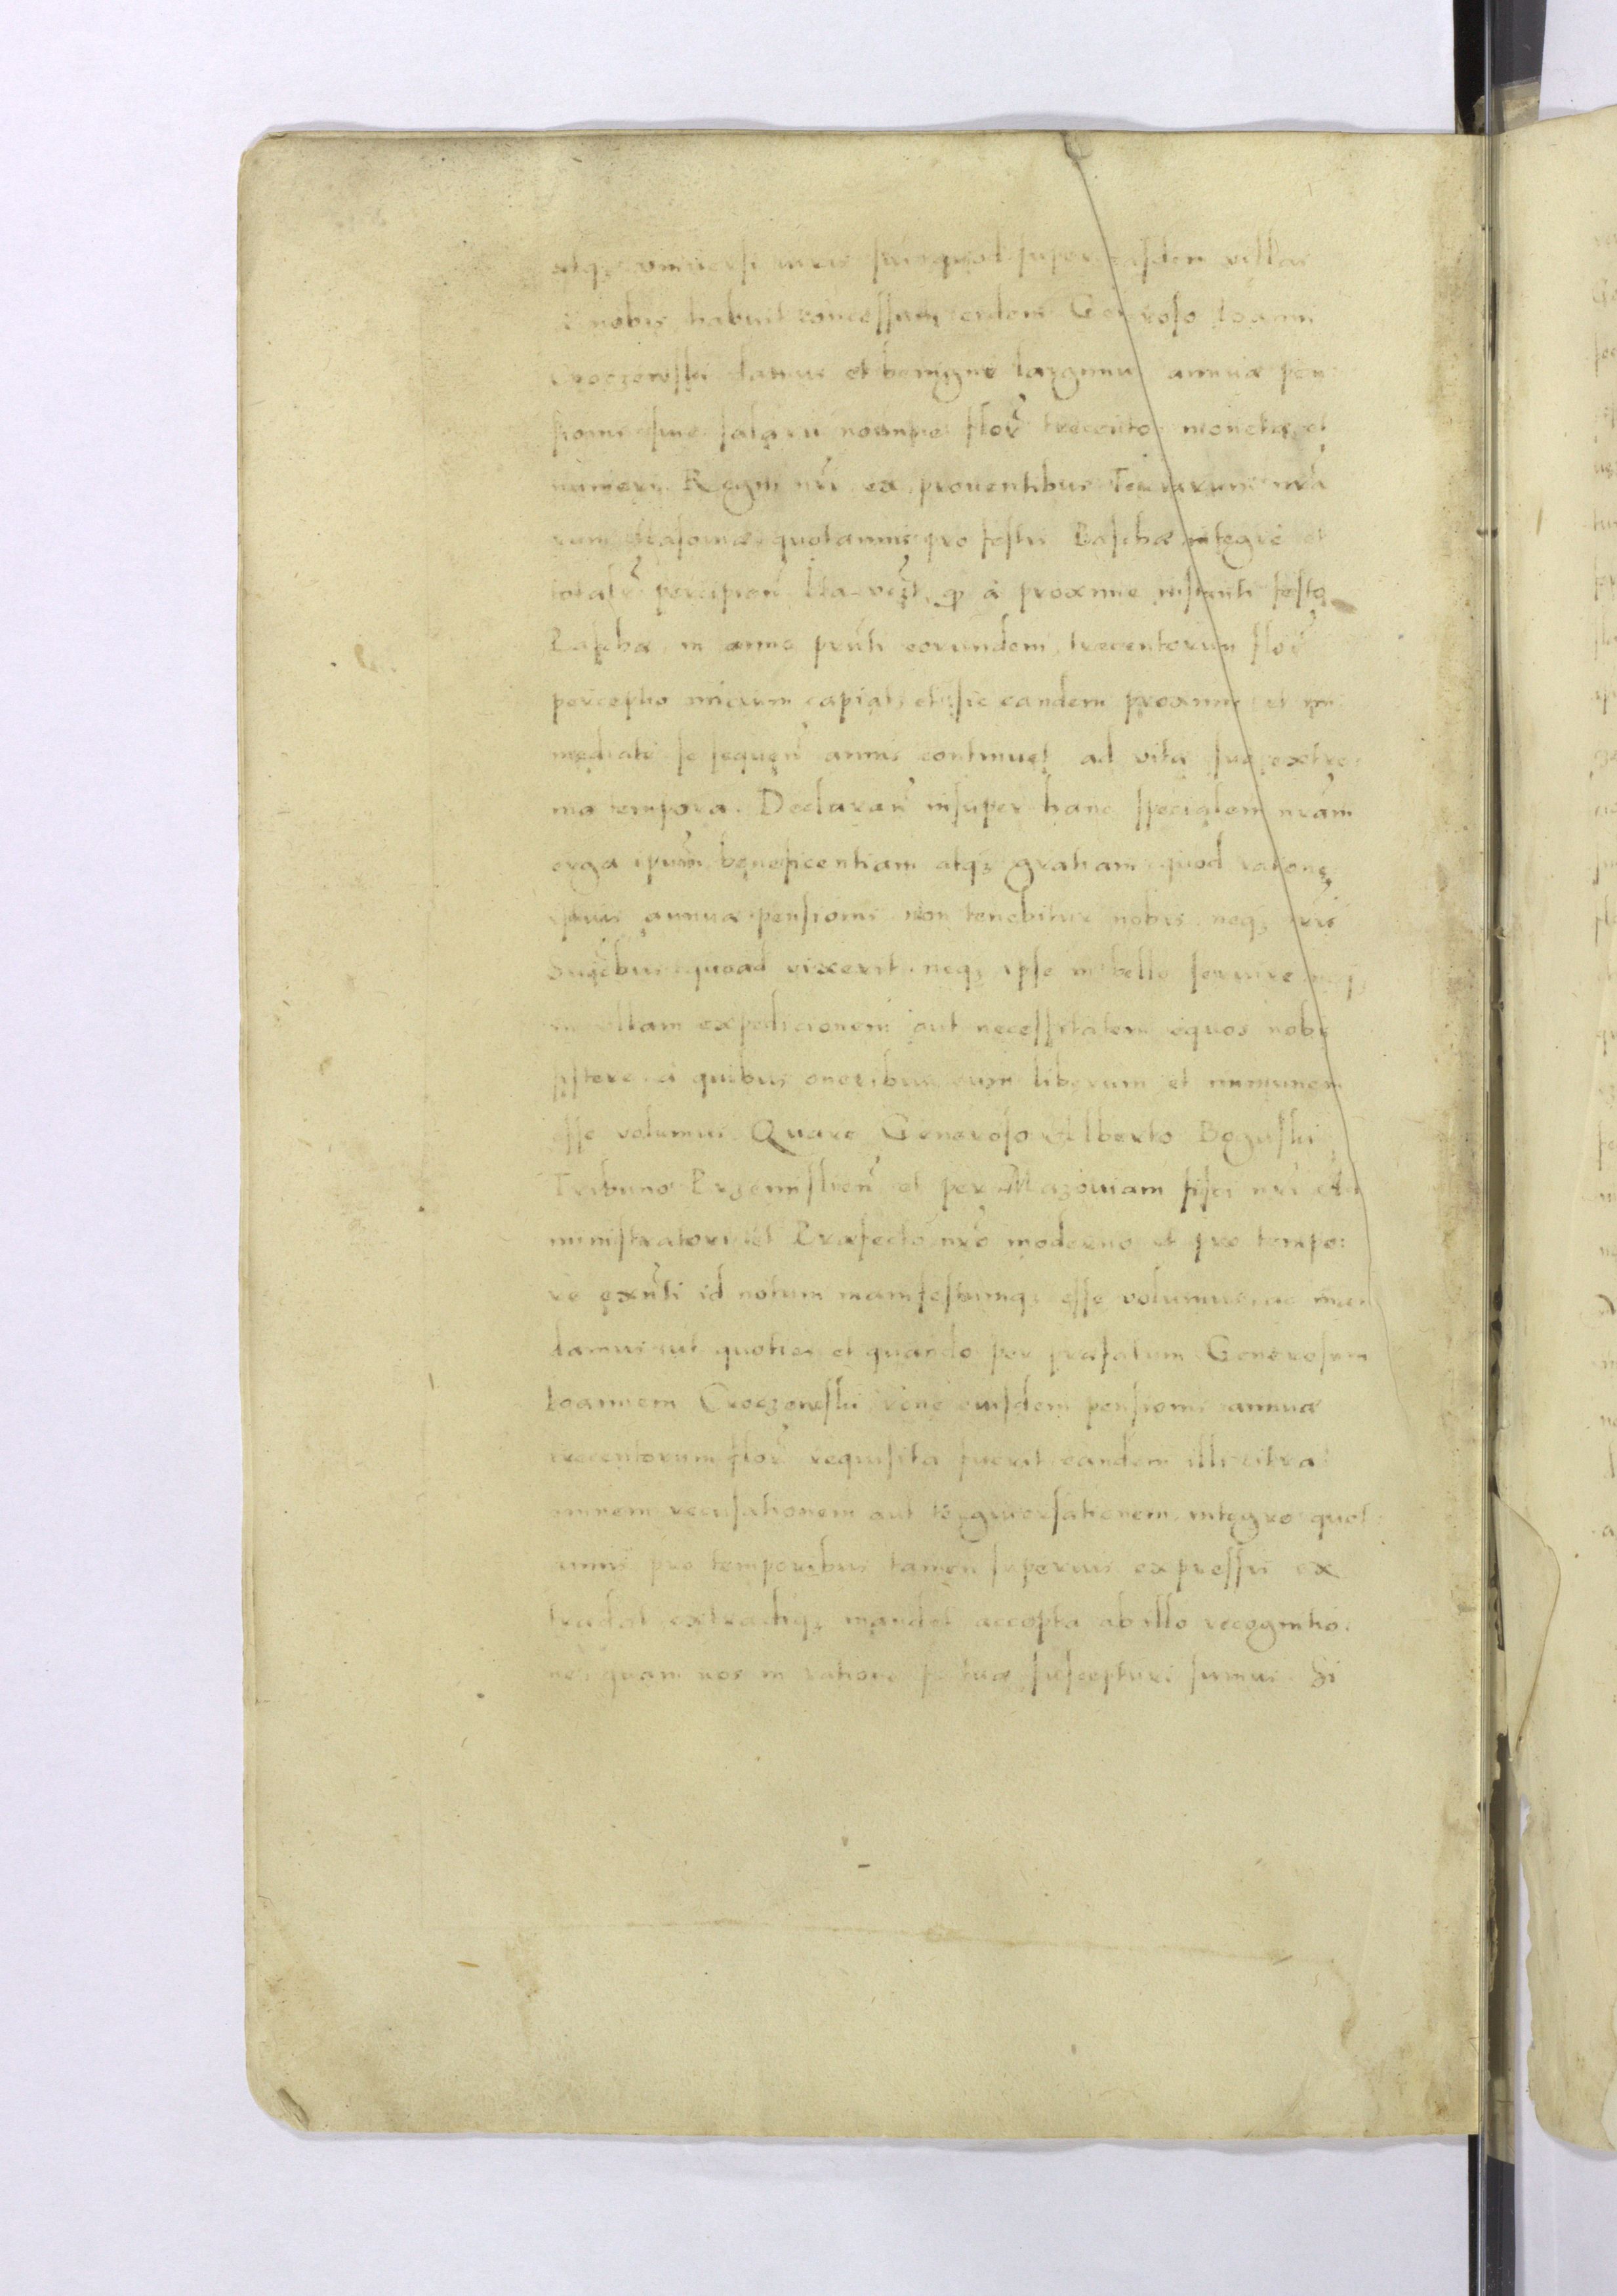 atq3 vniuersi iuris sui quod super easdem villas
a nobis habuit concessum, eidem Generoso Ioanni
Croczewski damus et benigne largimur annuæ pen
sionis siue salarii nomine flor trecentos monetæ et
numeri Regni nri ex prouentibus Terrarum nrā
rum Masouiæ quotannis pro festis Paschæ integre et
totalr percipien Ita vezt, q à proxime instanti festo
Paschæ in anno prnti eorundem trecentorum flor
perceptio initium capiat, et sic eandem proximis et im
mediate se sequen annis continuet ad vitæ suæ extre
ma tempora. Declaran insuper hanc specialem nram
erga ipum beneficentiam atq3 gratiam quod ratione
istius annuæ pensionis non tenebitur nobis neq3 nris
Ducibus quoad vixerit neq3 ipse in bello seruire
in vllam expedicionem aut necessitatem equos nobis
sistere, a quibus oneribus eum liberum et immunem
esse volumus. Quare Generoso Alberto Boguski
Tribuno Przemislien et per Mazouiam fisci nri Ad
ministratori et Præfecto nro moderno et pro tempo:
re exnti id notum manifestumq3 esse volumus ac man
damus vt quoties et quando per præfatum Generosum
Ioannem Croczewski rone eiusdem pensionis annuæ
trecentorum flor requisita fuerit, eandem illi citra
omnem recusationem aut tergiuersationem integre quot
annis pro temporibus tamen superius expressis ex
tradat extradiq3 mandet accepta ab illo recognitio:
ne, quam nos in ratione suscepturi sumus. Si